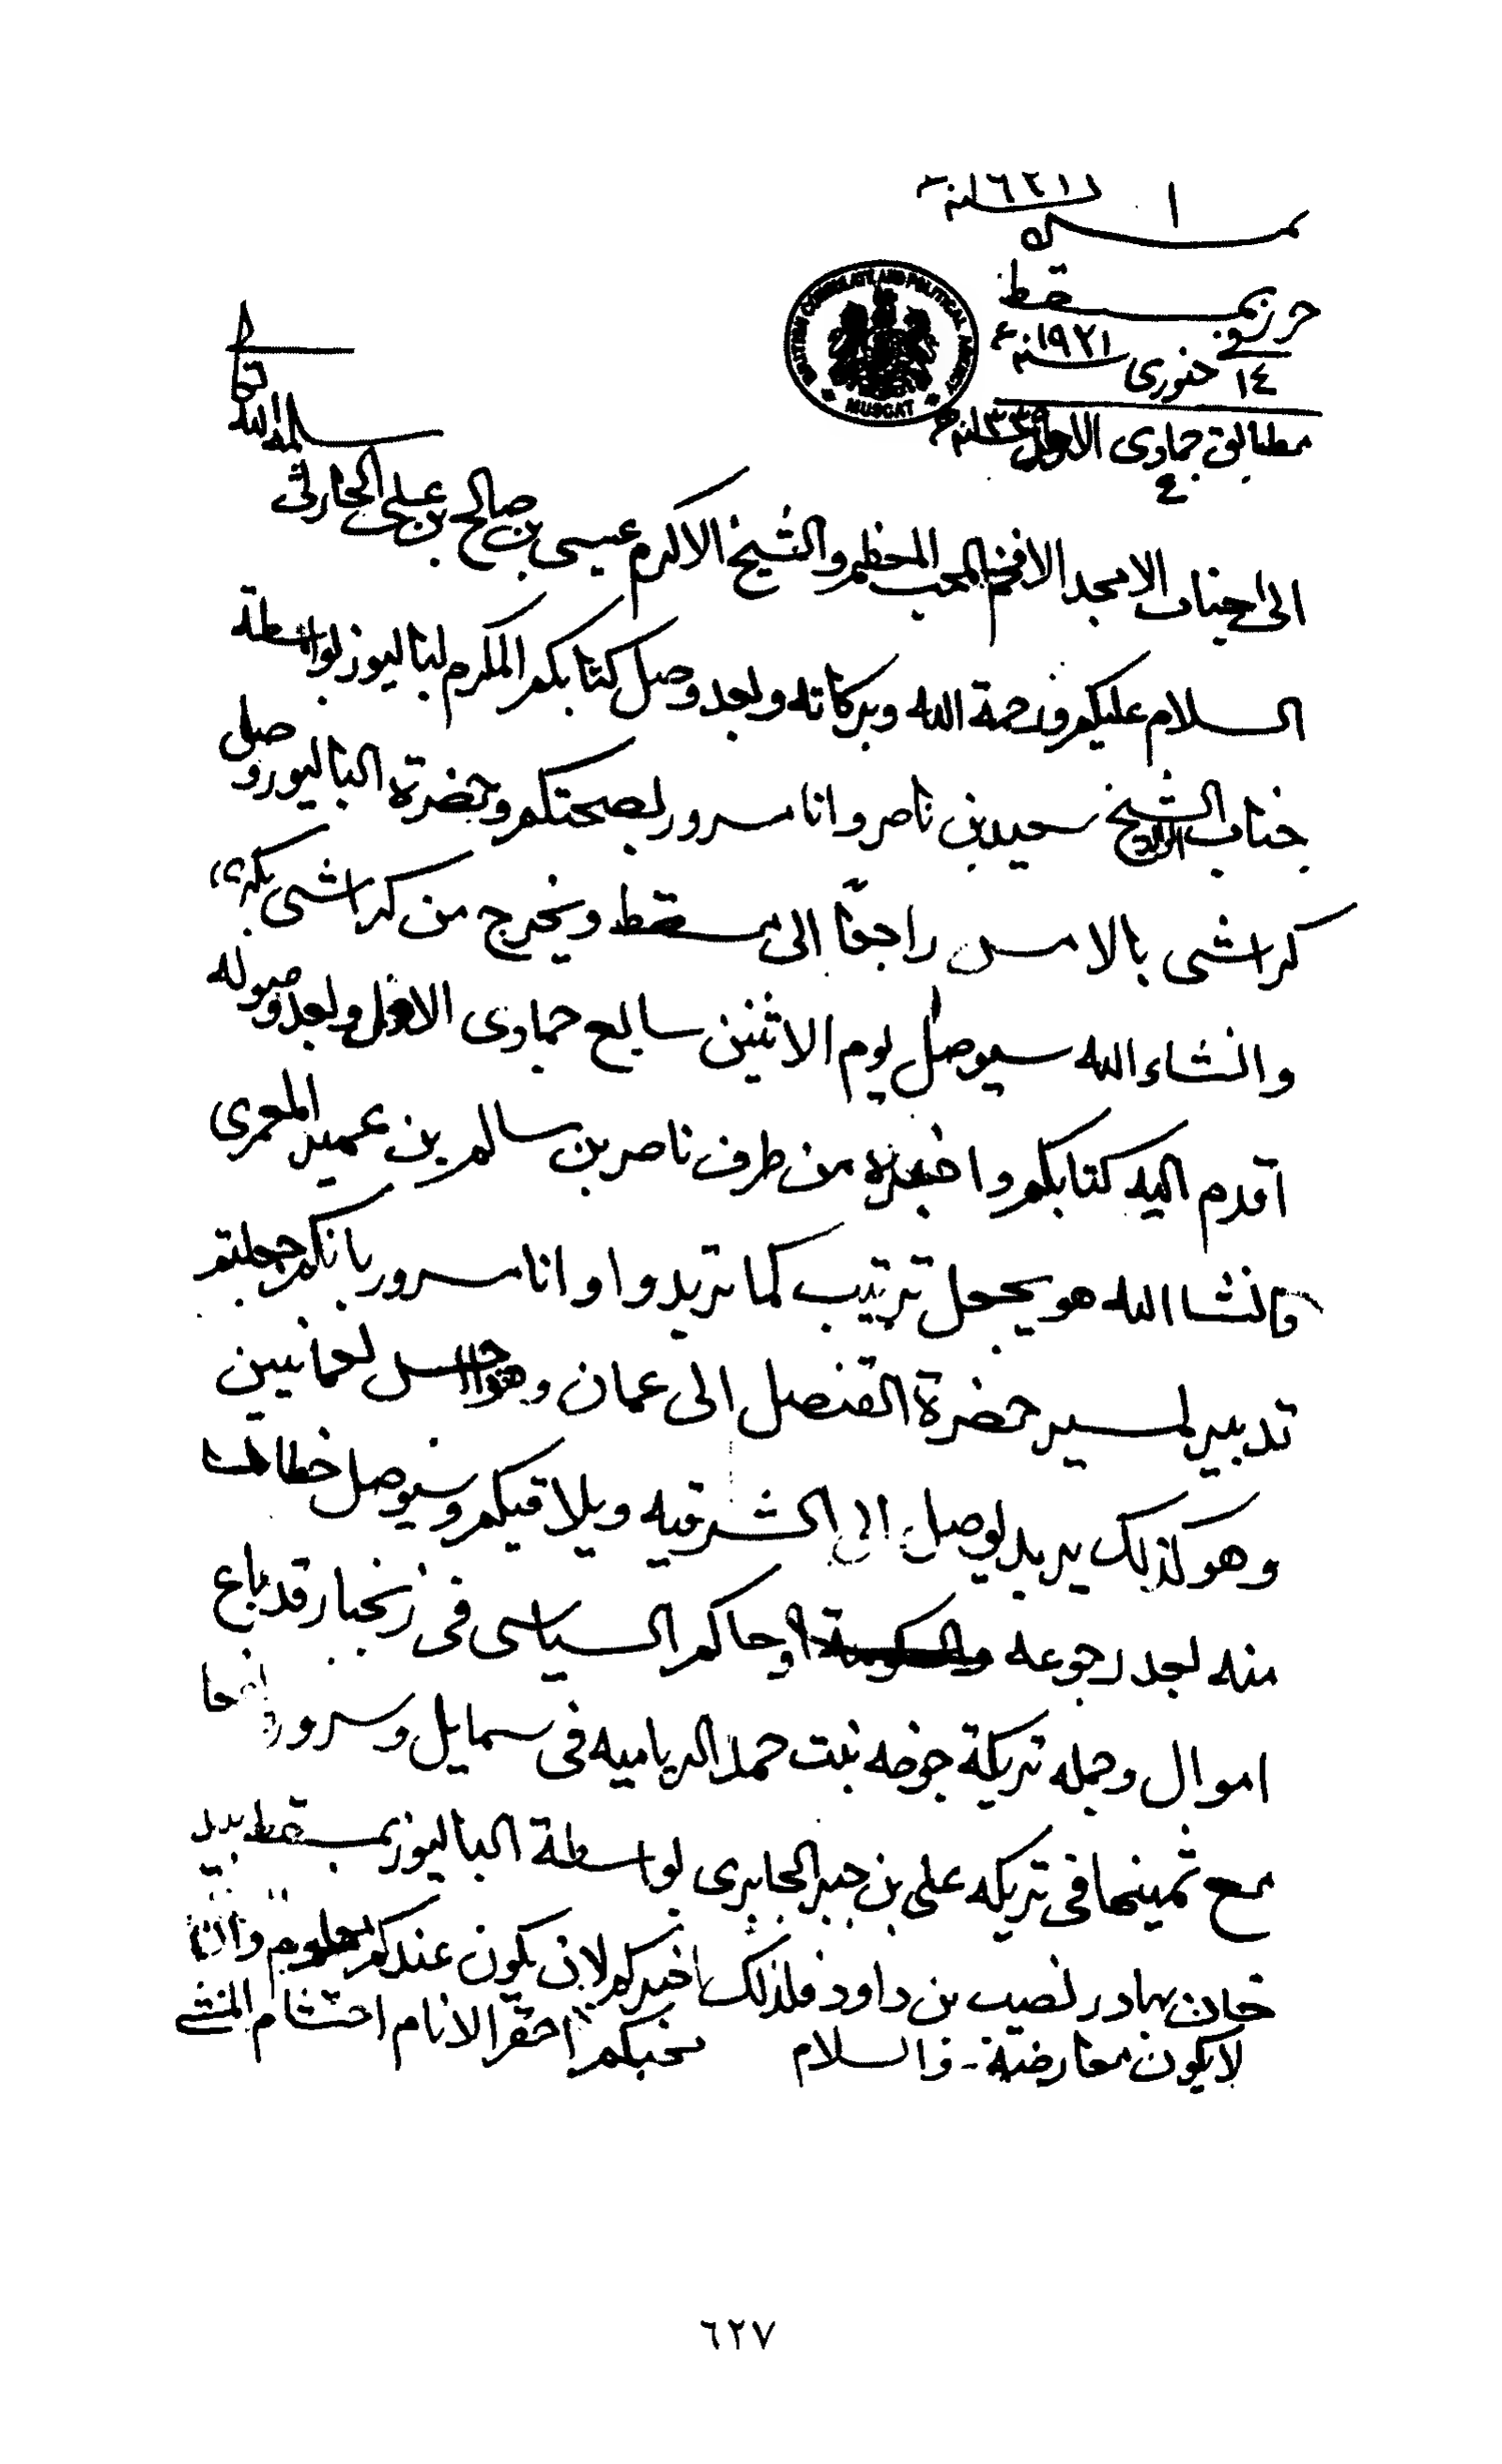 ١
نمرہ
حرر في بمسقط
١٤ جنوري سنه ١٩٢١ء
مطابق جمادى الاول سنه ١٣٣٩
٤
BRITISH CONSULATE AND POLITICAL AGENCY
MUSCAT
سلمه الله تعالى
الى جناب الامجد الافخم المحب المعظم والشيخ الاكرم عيسى بن صالح بن علي الحارثي
السلام عليكم ورحمة الله وبركاته وبعد وصل كتابكم المكرم لباليوز بواسطة
جناب الشيخ سعيد بن ناصر وانا مسرور بصحتكم وحضرة الباليوز وصل
كراشى بالامس راجعًا الى مسقط ويخرج من كراشى
وانشاء الله سيوصل يوم الاثنين سابع جمادى الاول وبعد وصوله
آقدم اليه كتابكم واخبره من طرف ناصر بن سالم بن عمير المعمرى
فانشا الله هو يجعل ترتيب كما تريدوا وانا مسرور بانكم جعلتم
تدبير لمسير حضرة القنصل الى عمان وهو لعمانيين
وهو كذلك يريد يوصل الى الشرقيه ويلاقيكم وسيوصل خطابا
منه بعد رجوعه وحاكم السياسى فى زنجبار قد باع
اموال وجمله تريكة جوخه بنت حمد الرياميه فى سمايل وسرور
مع ثمينها فى تريكه على بن جبر الجابرى بواسطة الباليوز بمسقط بيد
خان بهادر نصيب بن داود فلذلك اخبركم لان يكون عندكم معلوم
لا يكون معارضة - والسلام محبكم احقر الانام احتشام المنشى
٦٢٧